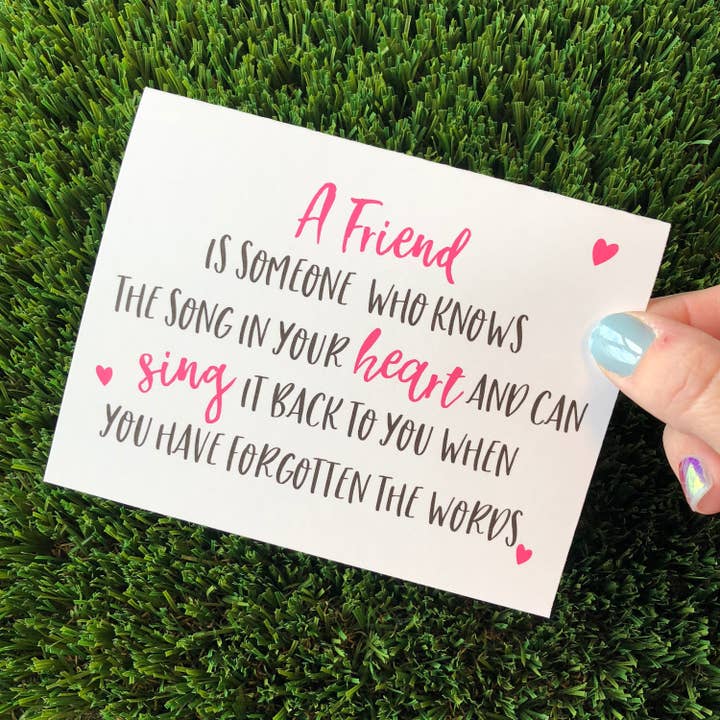 A Friend
IS SOMEONE WHO KNOWS
THE SONG IN YOUR heart AND CAN
sing IT BACK TO YOU WHEN
YOU HAVE FORGOTTEN THE WORDS